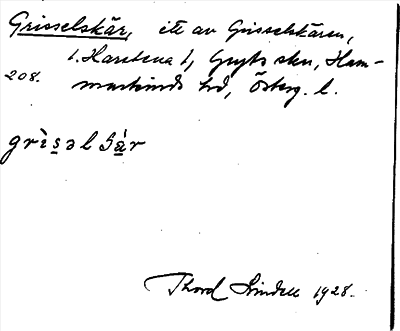 Grisselskär, ett av Grisselskären,
t. Harstena 1, Gryts skn, Ham-
208.
markinds hd, Österg. l.
grìs̲əlʃä̀r
Thord Lindell 1928.